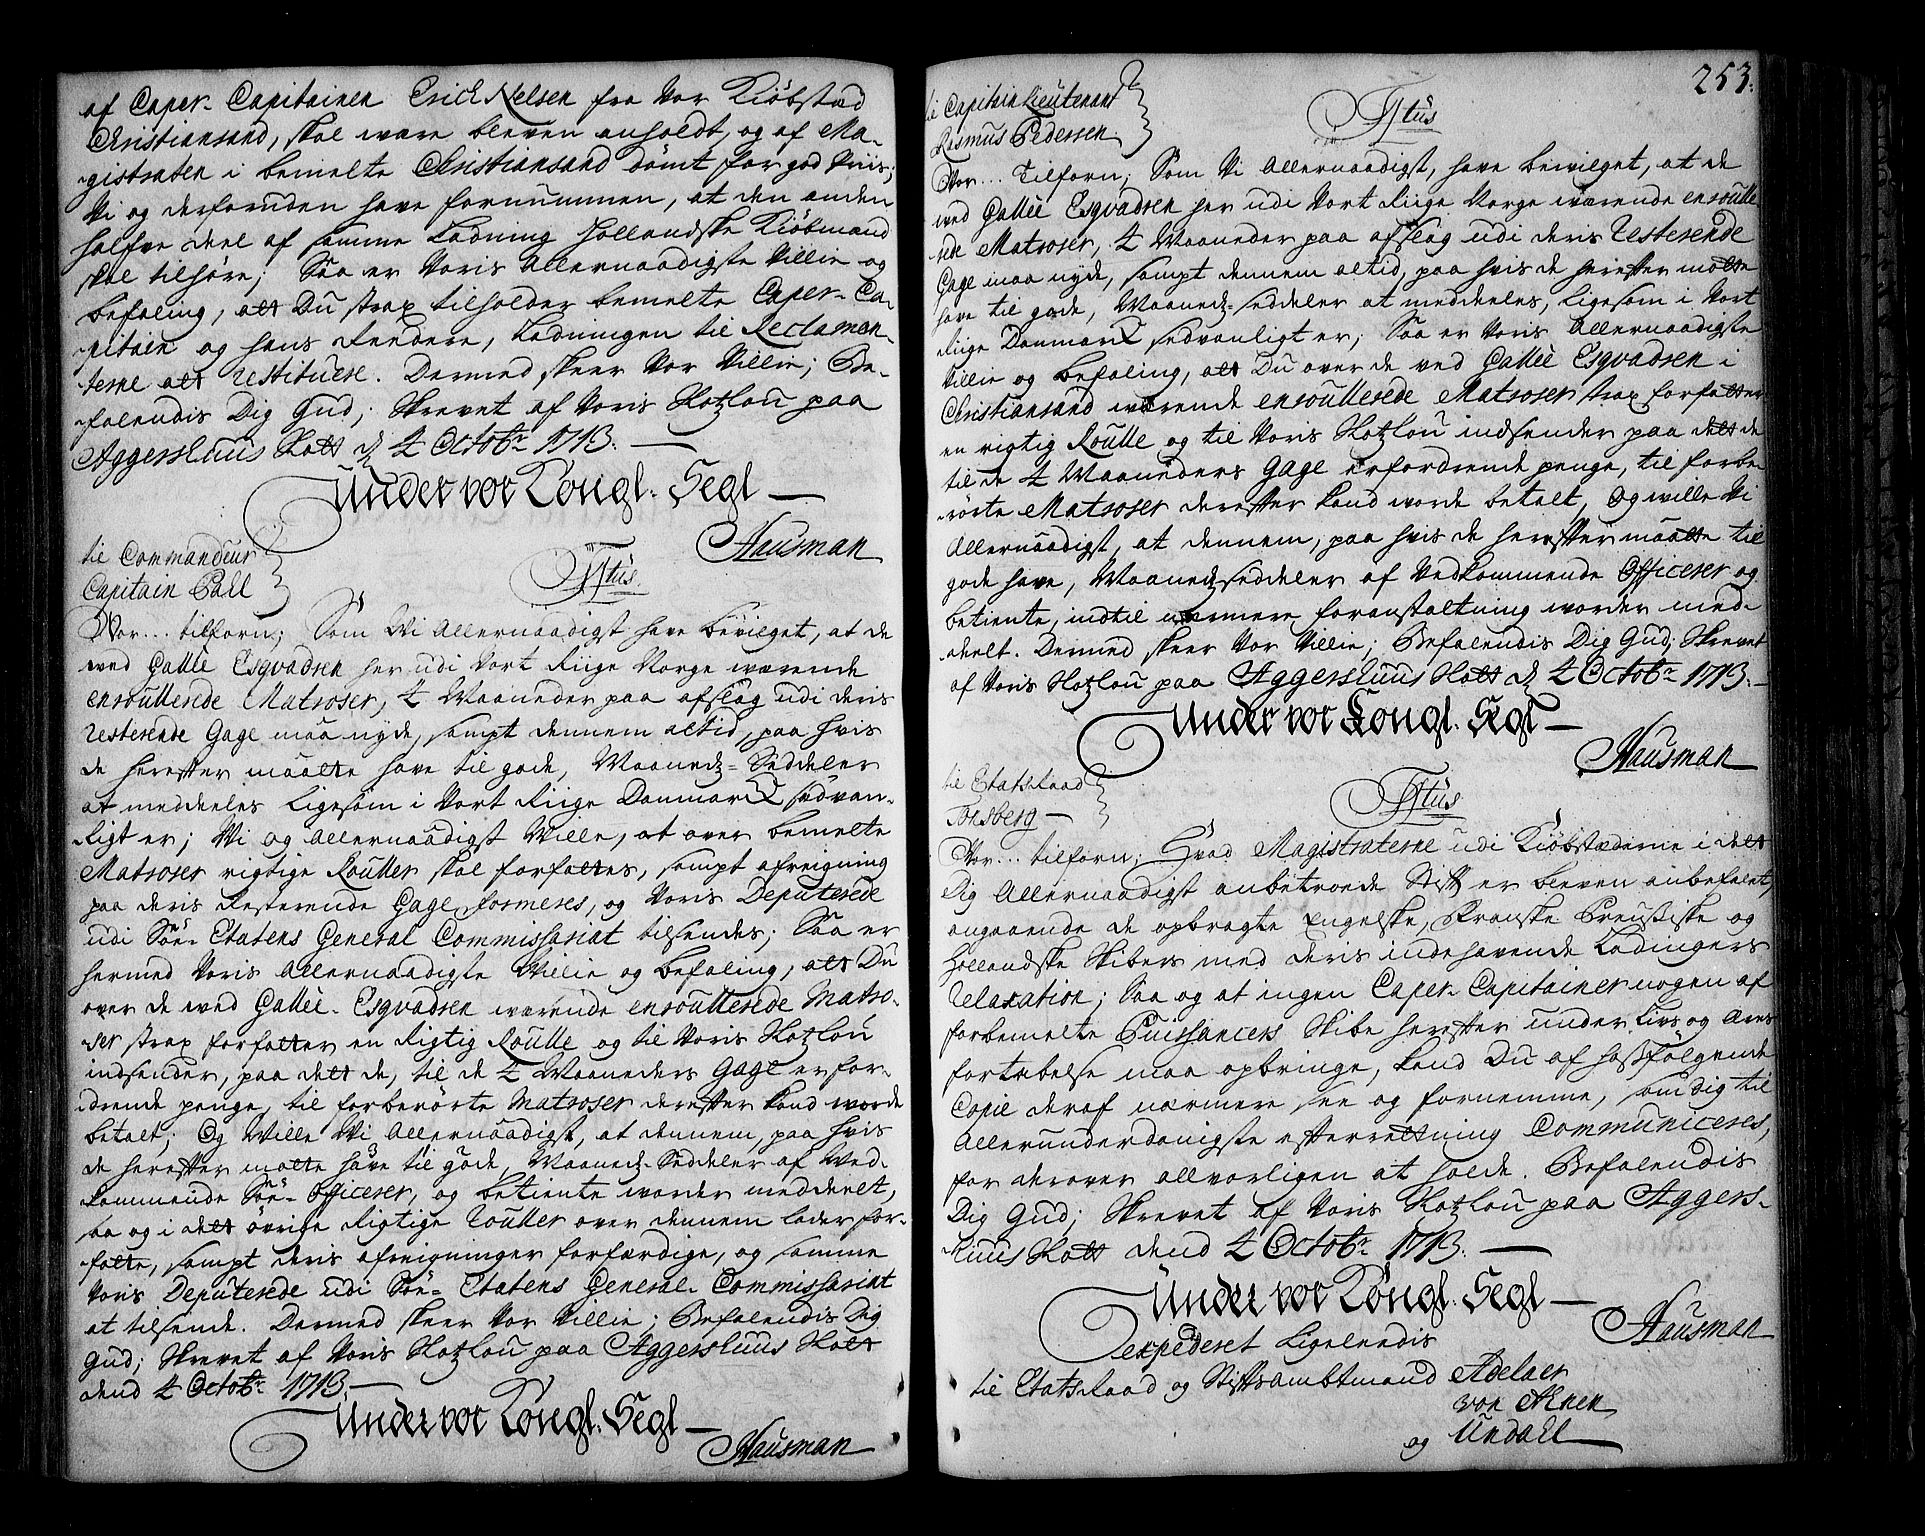 af Caper-Capitainen Erich Nelsen fra Vor Kiöbstæd
Christiansand, skal være bleven anholdt, og af Ma-
gistraten i bemelte Christiansand dömt for god Priis;
Vi og derforuden have fornummen, at den anden
halfve deel af samme Ladning Hollandske Kiöbmænd
skal tilhöre; Saa er Voris Allernaadigste Villie og
befaling, att Du strax tilholder bemelte Caper-Ca-
pitain og hans Reedere, Ladningen til Reclamen-
terne att restituere. Dermed skeer Vor Villie; Be-
falendis Dig Gud; Skrevet af Voris Slotzlou paa
Aggershuus Slott d. 4 Octobr. 1713.
Under vor Kongl. Segl
Hausman
til Commandeur
Capitain Pall
Ftus
Vor... tilforn; Som Vi Allernaadigst have bevilget, at de
ved Galleé Esqvadren her udi Vort Riige Norge værende
enroullerede Matroser, 4 Maaneder paa afslag udi deris
resterende Gage maa nyde, sampt dennem altid, paa hvis
de herefter maatte have til gode, Maanedz-Seddeler
at meddeeles ligesom i Vort Riige Danmark sedvan-
ligt er; Vi og Allernaadigst Ville, at over bemelte
Matroser rigtige Rouller skal forfattes, sampt afreigning
paa deris Resterende Gage formeres, og Voris Deputerede
udi Söe-Etatens General Commissariat tilsendes; Saa er
hermed Voris Allernaadigste Villie og befaling, att Du
over de ved Galleé-Esqvadren værende enroullerede Matro-
ser strax forfatter en Rigtig Roulle og til Voris Slotzlou
indsender, paa dett de, til de 4 Maaneders Gage erfor-
drende penge, til forberörte Matroser derefter kand vorde
betalt; Og Wille Vi Allernaadigst, at dennem, paa hvis
de herefter matte have til gode, Maanedz-Seddeler af Ved-
kommende Söe-Officerer, og betiente vorder meddeelet,
saa og i dett övrige Rigtige Roulker over dennem lader for-
fatte, sampt deris afreigninger forfærdige, og samme
Voris Deputerede udi Söe-Etatens General-Commissariat
at tilsende. Dermed skeer Vor Villie; Befalendis Dig
Gud; Skrevet af Voris Slotzlou paa Aggershuus Slott
dend 4 Octobr. 1713.
Under vor Kongl. Segl
Hausman
253.
til Capitain Lieutenant
Rasmus Pedersen
Ftus
Vor... Tilforn; Som Vi Allernaadigst, have bevilget, at de
ved Galleé Esqvadren her udi Vort Riige Norge værende enroulle
rede Matroser, 4 Maaneder paa afslag udi deris Resterende
Gage maa nyde, sampt dennem altid, paa hvis de herefter matte
have til gode, Maanedz-Seddeler at meddeeles, ligesom i Vort
Riige Danmark sedvanligt er; Saa er Voris Allernaadigste
Villie og befaling, att Du over de ved Galleé Esqvadren i
Christiansand værende enroullerede Matroser strax forfatter
en rigtig Roulle og til Voris Slotzlou indsender paa dett de
til de 4 Maaneders Gage erfordrende penge, til forbe-
rörte Matroser derefter kand vorde betalt, Og wille Vi
Allernaadigst, at dennem, paa hvis de herefter maatte til
gode have, Maanedzseddeler af Vedkommende Officerer og
betiente, indtil nærmere foranstaltning vorder med-
deelt. Dermed skeer Vor Villie; Befalendis Dig Gud; Skrevet
af Voris Slotzlou paa Aggershuus Slott d. 4 Octobr. 1713.
Under vor Kongl. Segl
Hausman
til Etatsraad
Tonsberg
Ftus
Vor... tilforn; Hvad Magistraterne udi Kiöbstæderne i dett
Dig Allernaadigst anbetroede Stift er bleven anbefalet,
angaaende de opbragte Engelske, Franske Breussiske og
Hollandske Skibers med deris indehavende Ladningers
Relaxation; Saa og at ingen Caper-Capitainer nogen af
forbemelte Puissancers Skibe herefter under Livs og Æres
fortabelse maa opbringe, kand Du af hosfölgende
Copie deraf nærmere see og fornemme, som dig til
Allerunderdanigste efterrettning Communiceres,
for derover allvorligen at holde. Befalendis
Dig Gud; Skrevet af Voris Slotzlou paa Aggers-
huus Slott dend 4 Octobr. 1713.
Under vor Kongl. Segl
Hausman
expederet Ligeleedis
til Etatsraad og Stiftsambtmand Adelaer
von Ahnen
og Undall